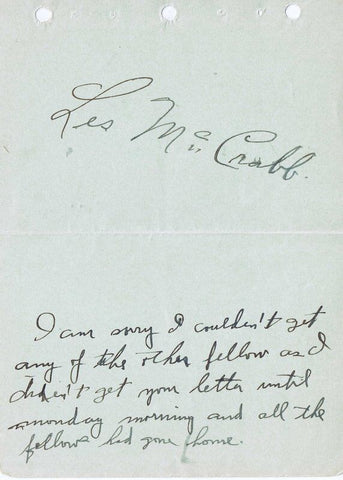 Les McCrabb.
I am sorry I couldn't get
any of the other fellow as I
didn't get your letter until
monday morning and all the
fellows had gone home.